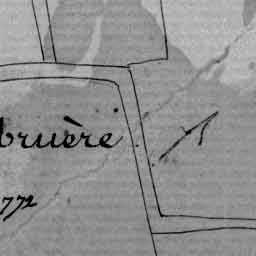 bruère
772